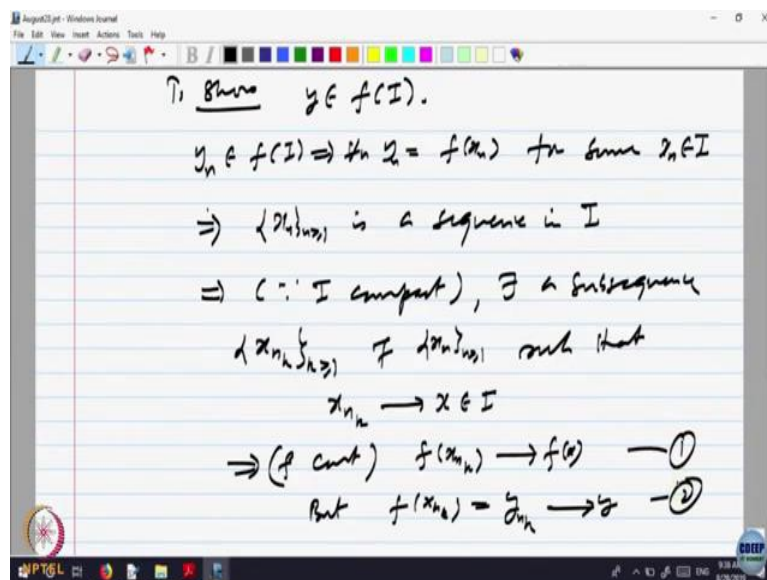 August28.jnt - Windows Journal
File Edit View Insert Actions Tools Help
To Show y ∈ f(I).
y_n ∈ f(I) ⇒ y_n = f(x_n) for some x_n ∈ I
⇒ {x_n}_{n≥1} is a sequence in I
⇒ (∵ I compact), ∃ a subsequence
{x_{n_k}}_{k≥1} of {x_n}_{n≥1} such that
x_{n_k} → x ∈ I
⇒ (f cont) f(x_{n_k}) → f(x) — ①
But f(x_{n_k}) = y_{n_k} → y — ②
NPTEL
CDEEP
ENG
8/28/2019